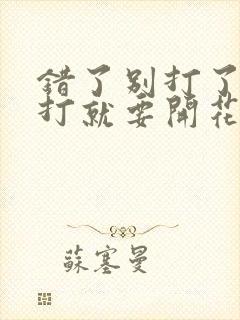 錯了別打了
打就要開花
蘇塞曼